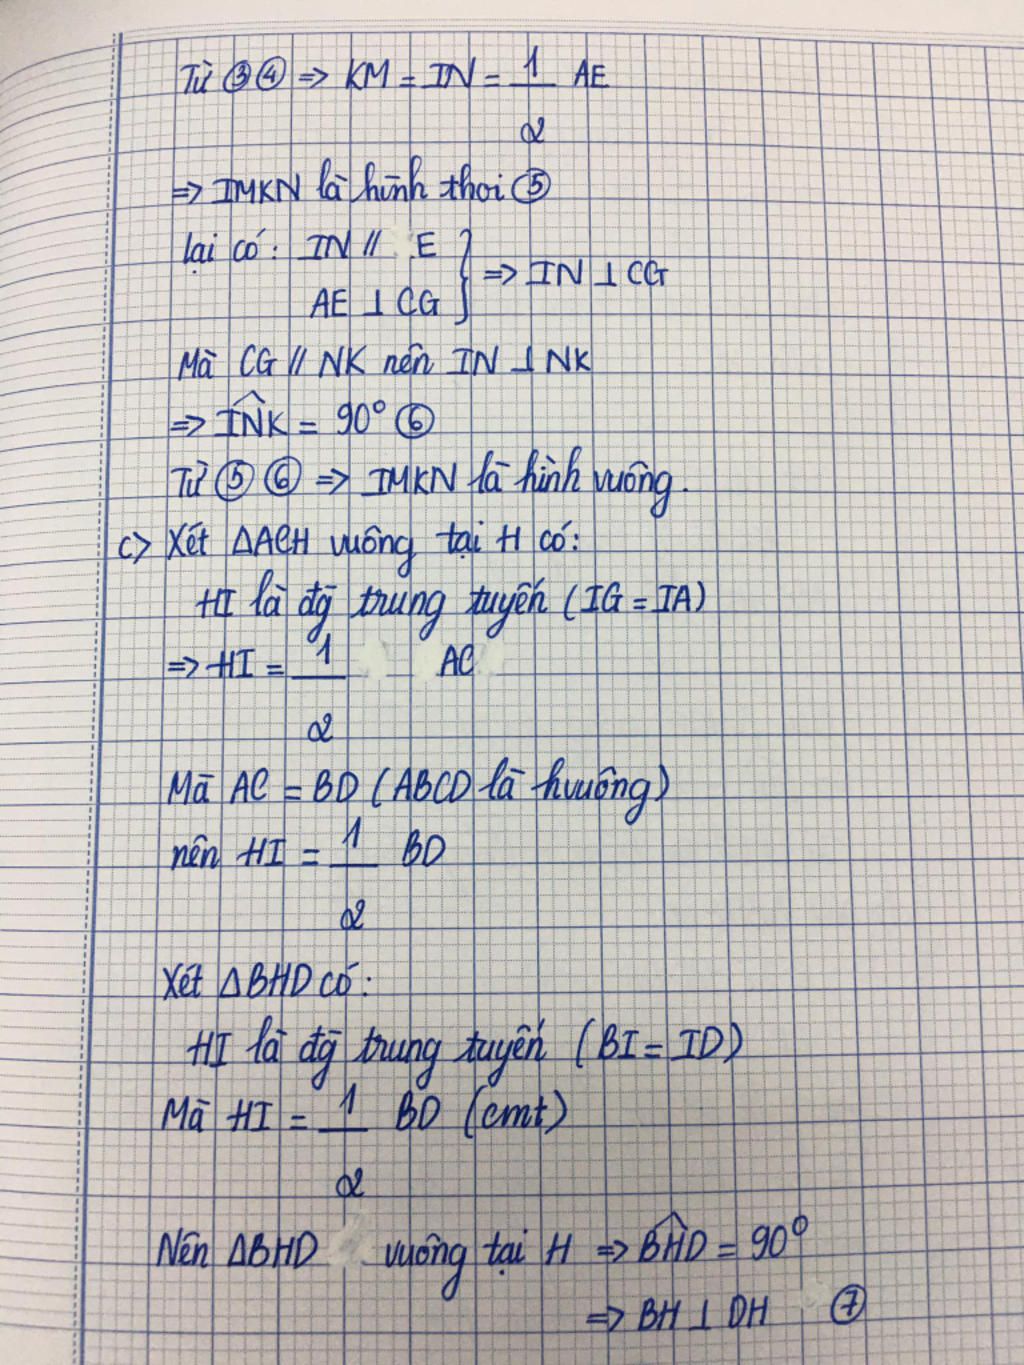 Từ ③④ => KM = IN = 1/2 AE
=> IMKN là hình thoi ⑤
lại có: IN // E
AE ⊥ CG } => IN ⊥ CG
Mà CG // NK nên IN ⊥ NK
=> \widehat{INK} = 90° ⑥
Từ ⑤ ⑥ => IMKN là hình vuông.
c> Xét ΔACH vuông tại H có:
HI là đg trung tuyến (IG = IA)
=> HI = 1/2 AC
Mà AC = BD (ABCD là hvuông)
nên HI = 1/2 BD
Xét ΔBHD có:
HI là đg trung tuyến (BI = ID)
Mà HI = 1/2 BD (cmt)
Nên ΔBHD vuông tại H => \widehat{BHD} = 90°
=> BH ⊥ DH ⑦